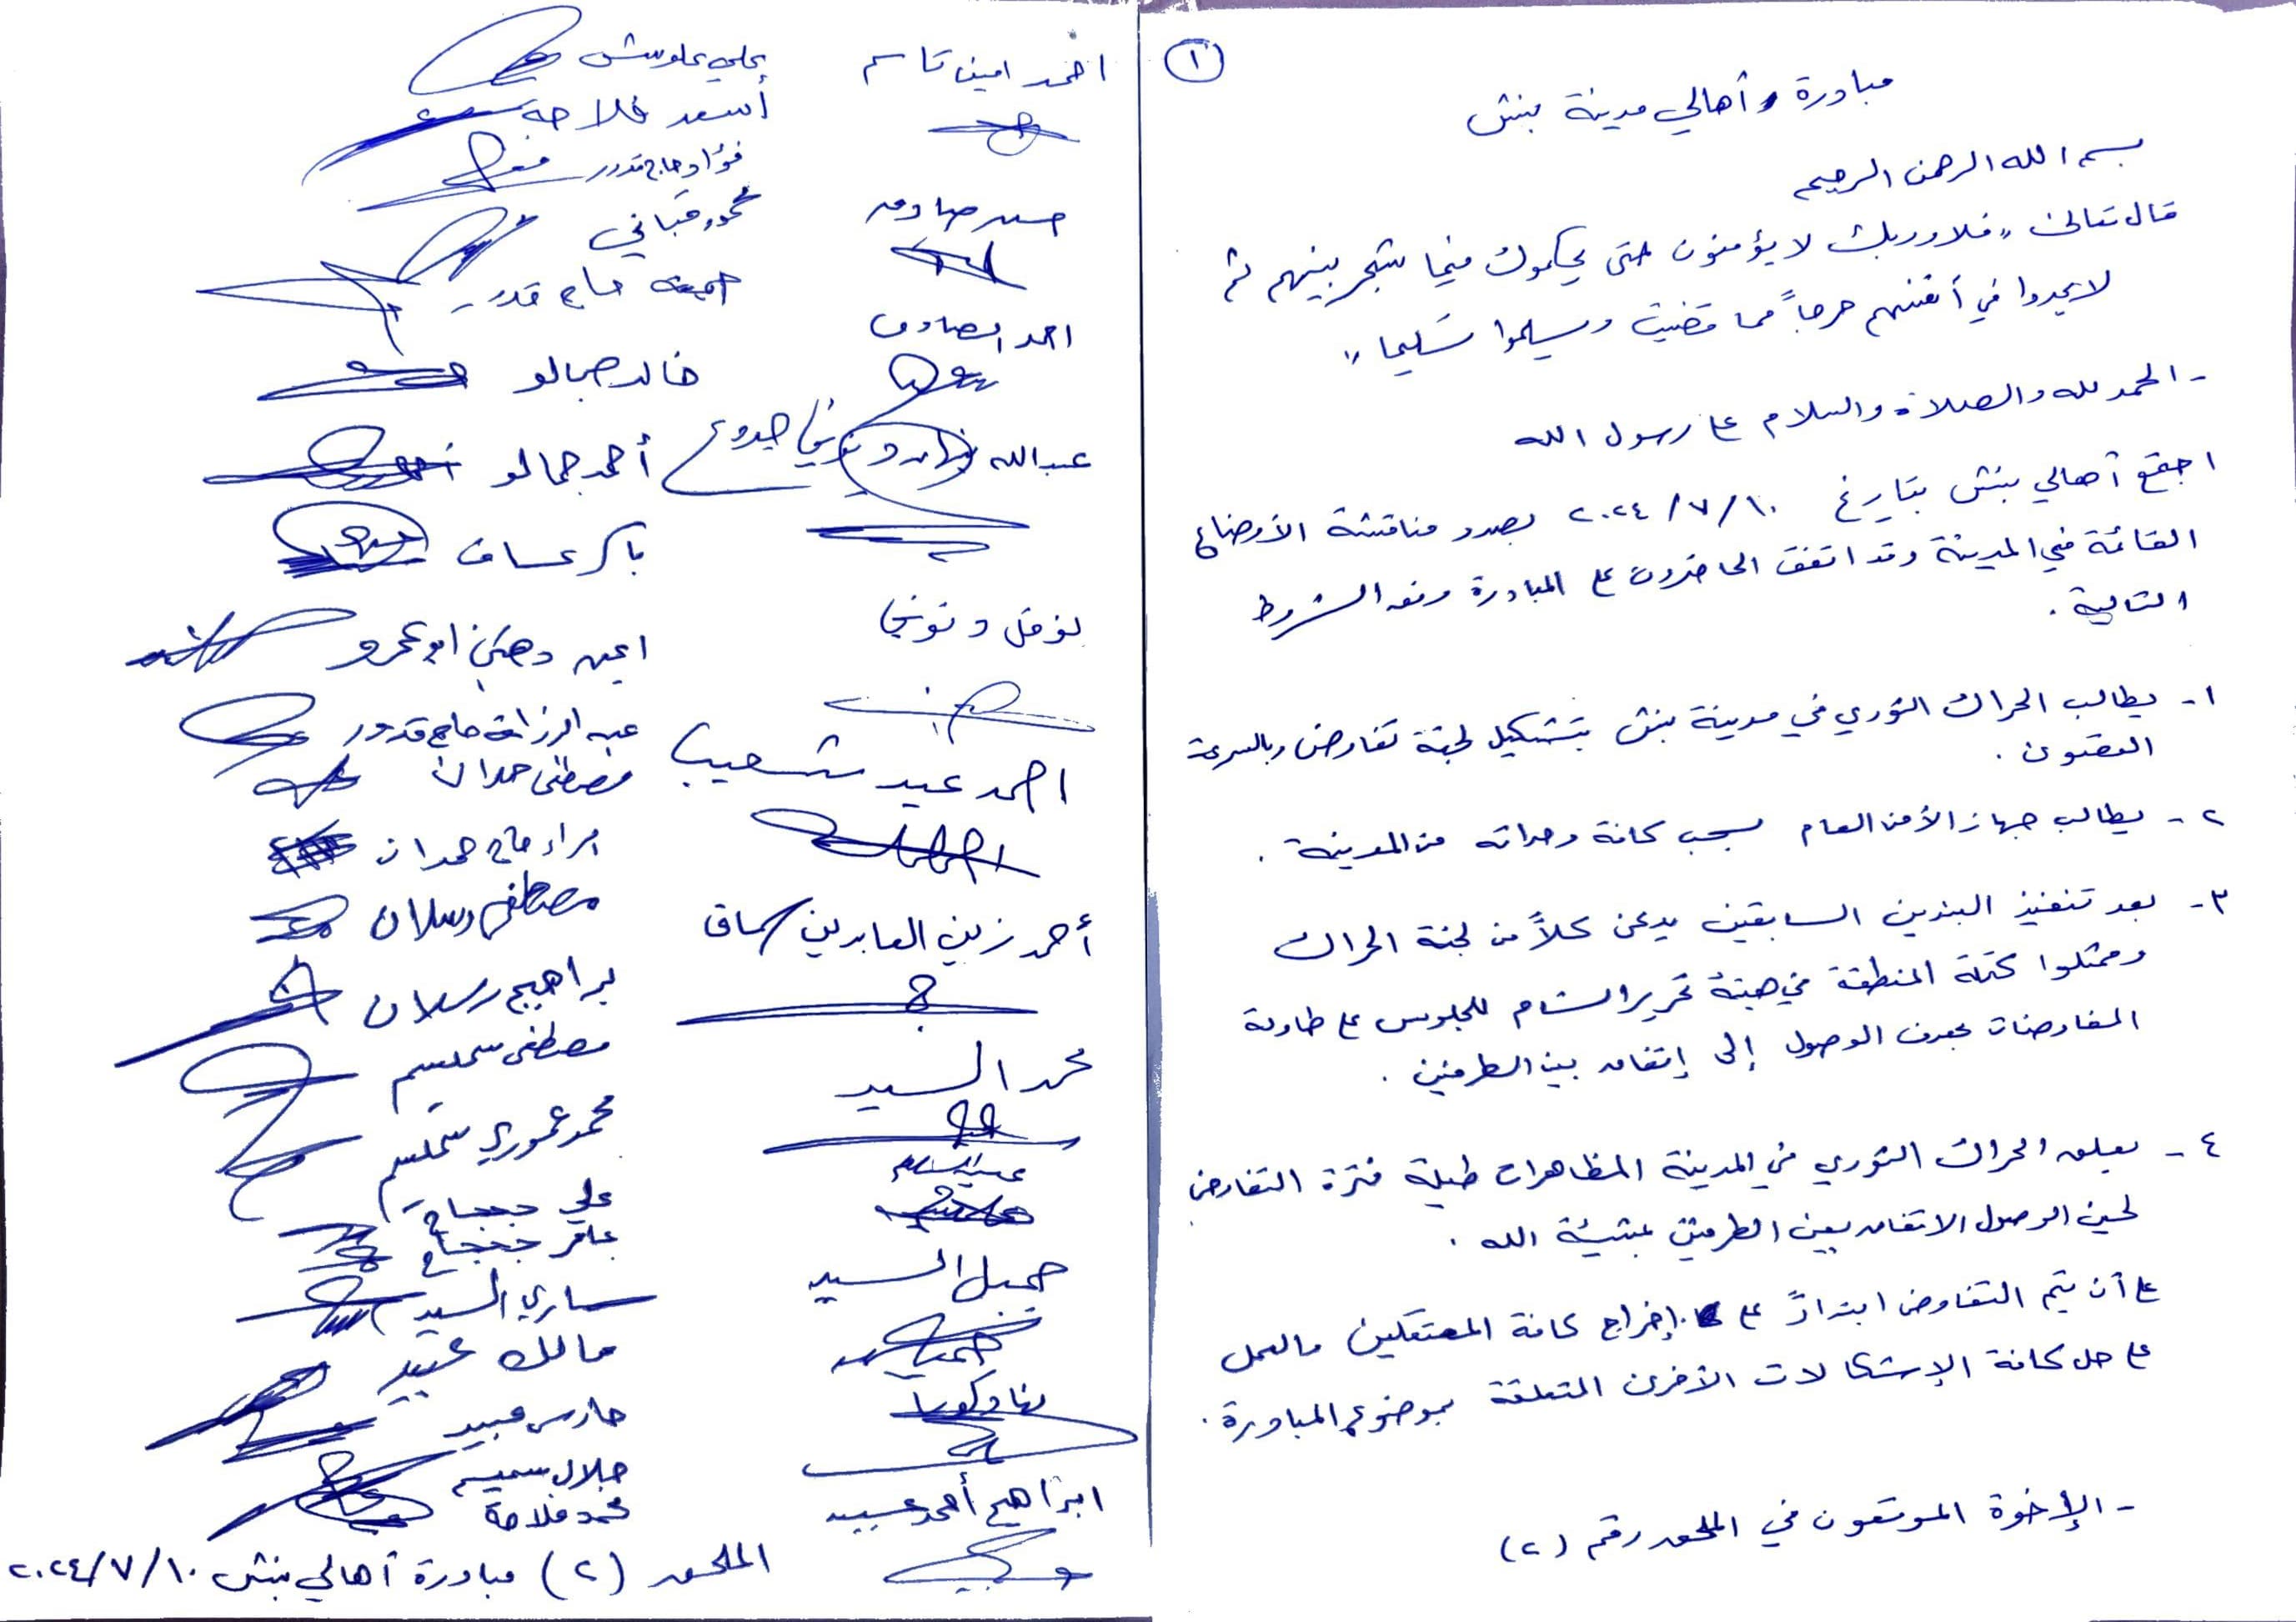 ١
مبادرة أهالي مدينة بنش
بسم الله الرحمن الرحيم
قال تعالى "فلا وربك لا يؤمنون حتى يحكموك فيما شجر بينهم ثم
لا يجدوا في أنفسهم حرجاً مما قضيت ويسلموا تسليما"
- الحمد لله والصلاة والسلام على رسول الله
اجتمع أهالي بنش بتاريخ ٢٠٢٤/٧/١٠ بصدد مناقشة الأوضاع
القائمة في المدينة وقد اتفق الحاضرون على المبادرة وفق الشروط
التالية .
١- يطالب الحراك الثوري في مدينة بنش بتشكيل لجنة تفاوض وبالسرعة
القصوى .
٢- يطالب جهاز الأمن العام بسحب كافة وحداته من المدينة .
٣- بعد تنفيذ البندين السابقين يدعى كلاً من لجنة الحراك
وممثلوا كتلة المنطقة في هيئة تحرير الشام للجلوس على طاولة
المفاوضات بهدف الوصول إلى إتفاق بين الطرفين .
٤- يعلق الحراك الثوري في المدينة المظاهرات طيلة فترة التفاوض
لحين الوصول لاتفاق بين الطرفين بمشيئة الله .
على أن يتم التفاوض ابتداءً على إخراج كافة المعتقلين والعمل
على حل كافة الإشكالات الأخرى المتعلقة بموضوع المبادرة .
- الإخوة الموقعون في الملحق رقم (٢)
احمد امين قاسم
حسن صادق
احمد الصادق
عبدالله جدوع
نوفل دنوني
احمد عيد شعيب
أحمد زين العابدين سماق
محمد السيد
عبدالسلام
جميل السيد
ابراهيم أحمد عبيد
علي علوش
أسعد فلاحة
فؤاد حاج قدور
محمود قباني
حاج قدور
خالد جمالو
أحمد جمالو
باكر عساف
ايمن دهني ابو عمرو
عبد الرزاق حاج قدور
مصطفى حمدان
براء حاج حمدان
مصطفى رسلان
براهيم رسلان
مصطفى سميسم
محمد عموري سميسم
علي جحجاح
جحجاح
ساري السيد
مالك عبيد
حارس عبيد
جلال سميسم
محمد فلاحة
الملحق (٢) مبادرة أهالي بنش ٢٠٢٤/٧/١٠